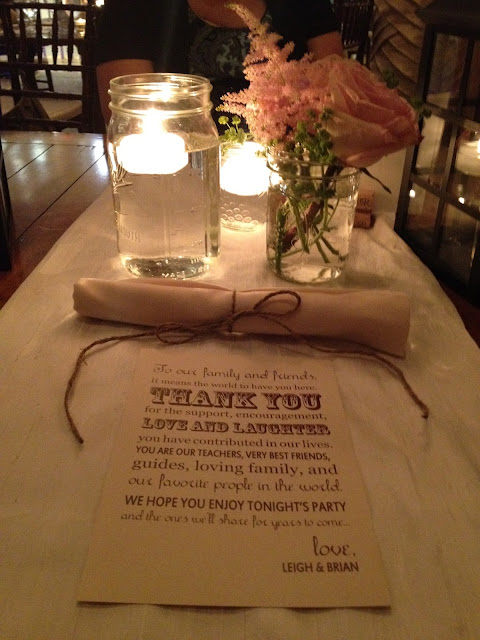 To our family and friends.
It means the world to have you here.
THANK YOU
for the support, encouragement,
LOVE AND LAUGHTER
you have contributed in our lives.
YOU ARE OUR TEACHERS, VERY BEST FRIENDS,
guides, loving family, and
our favorite people in the world.
WE HOPE YOU ENJOY TONIGHT'S PARTY
and the ones we'll share for years to come...
love,
LEIGH & BRIAN